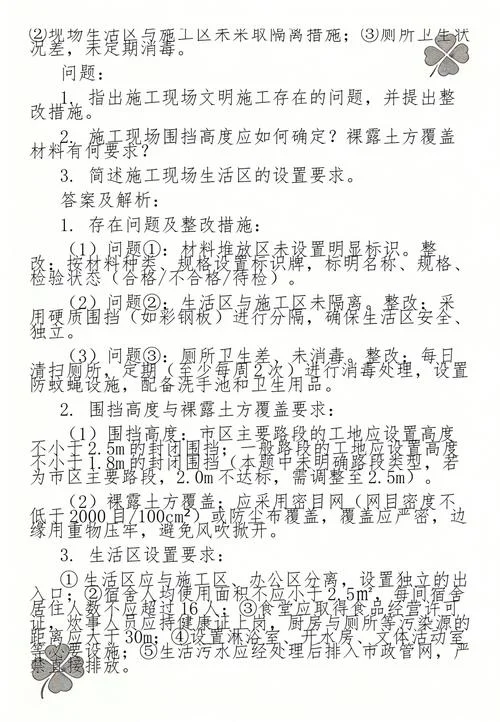 ②现场生活区与施工区未采取隔离措施；③厕所卫生状
况差，未定期消毒。
问题：
1. 指出施工现场文明施工存在的问题，并提出整
改措施。
2. 施工现场围挡高度应如何确定？裸露土方覆盖
材料有何要求？
3. 简述施工现场生活区的设置要求。
答案及解析：
1. 存在问题及整改措施：
（1）问题①：材料堆放区未设置明显标识。整
改：按材料种类、规格设置标识牌，标明名称、规格、
检验状态（合格/不合格/待检）。
（2）问题②：生活区与施工区未隔离。整改：采
用硬质围挡（如彩钢板）进行分隔，确保生活区安全、
独立。
（3）问题③：厕所卫生差、未消毒。整改：每日
清扫厕所，定期（至少每周2次）进行消毒处理，设置
防蚊蝇设施，配备洗手池和卫生用品。
2. 围挡高度与裸露土方覆盖要求：
（1）围挡高度：市区主要路段的工地应设置高度
不小于2.5m的封闭围挡；一般路段的工地应设置高度
不小于1.8m的封闭围挡（本题中未明确路段类型，若
为市区主要路段，2.0m不达标，需调整至2.5m）。
（2）裸露土方覆盖：应采用密目网（网目密度不
低于2000目/100cm²）或防尘布覆盖，覆盖应严密，边
缘用重物压牢，避免风吹掀开。
3. 生活区设置要求：
①生活区应与施工区、办公区分离，设置独立的出
入口；②宿舍人均使用面积不应小于2.5m²，每间宿舍
居住人数不应超过16人；③食堂应取得食品经营许可
证，炊事人员应持健康证上岗，厨房与厕所等污染源的
距离应大于30m；④设置淋浴室、开水房、文体活动室
等必要设施；⑤生活污水应经处理后排入市政管网，严
禁直接排放。